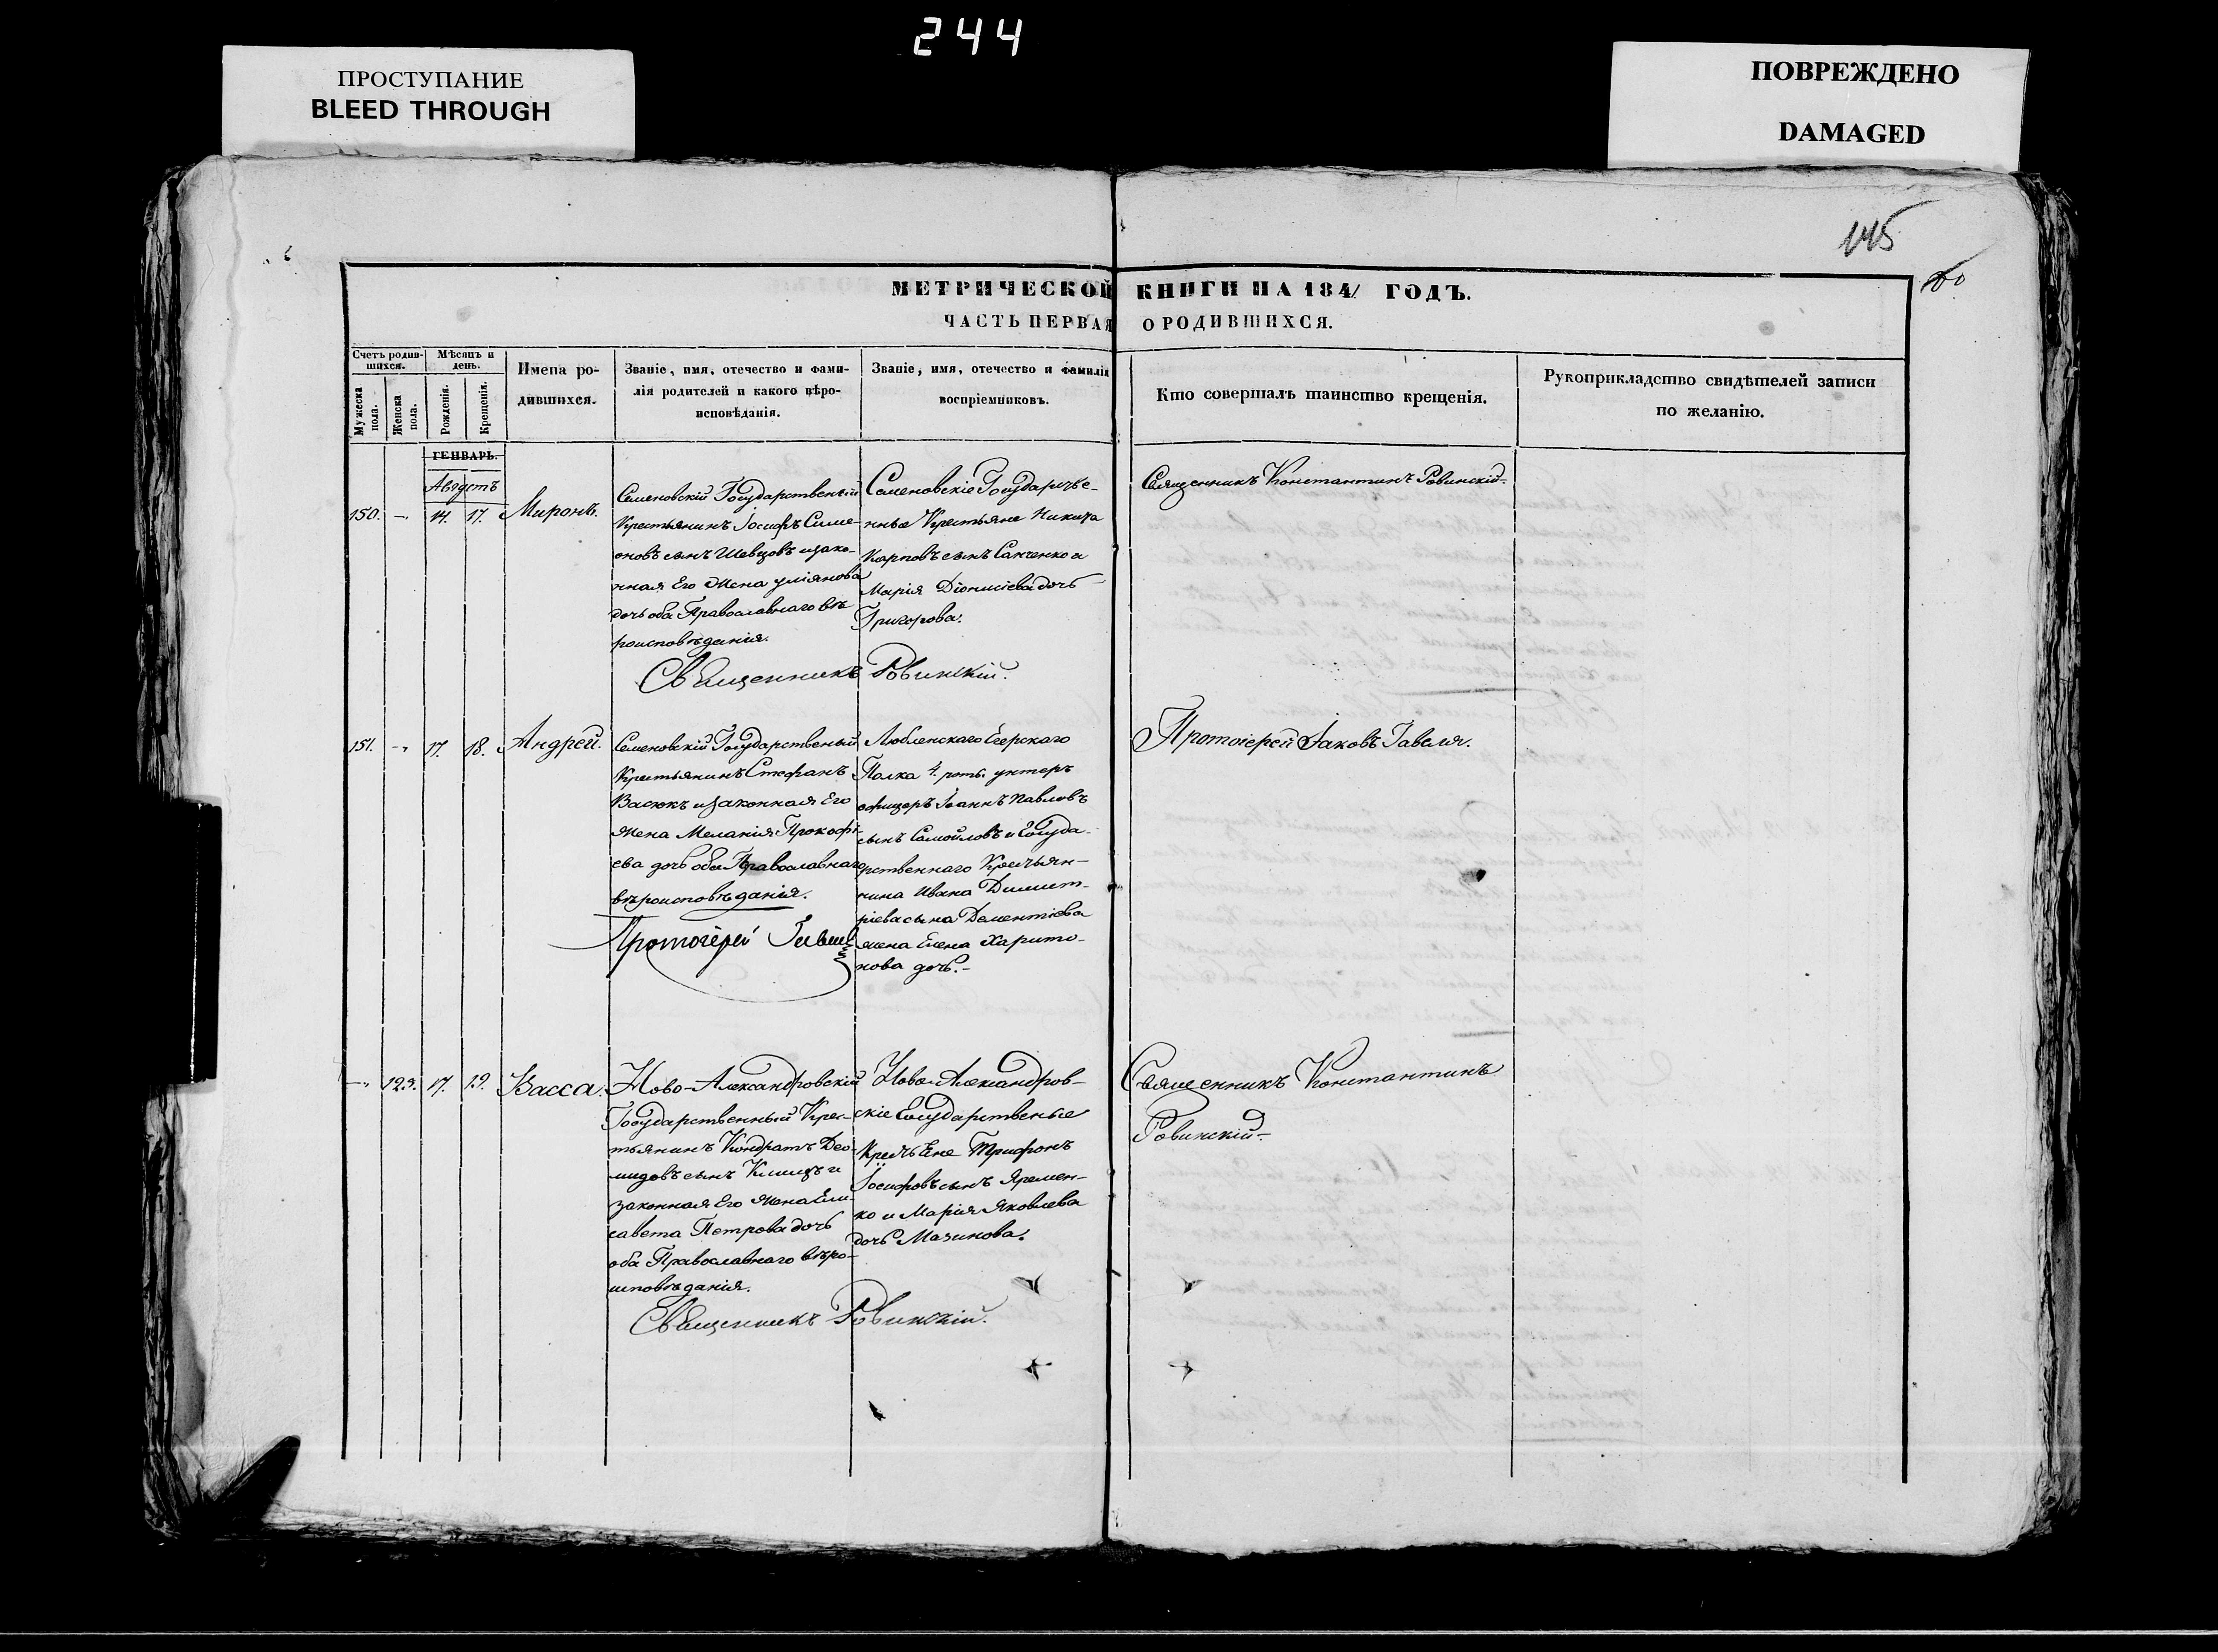 244
ПРОСТУПАНИЕ
BLEED THROUGH
ПОВРЕЖДЕНО
DAMAGED
145
МЕТРИЧЕСКОЙ КНИГИ НА 1841 ГОДЪ.
ЧАСТЬ ПЕРВАЯ О РОДИВШИХСЯ.
Счетъ родив-
шихся.
Мужеска
пола.
Женска
пола.
Мѣсяцъ и
день.
Рожденія.
Крещенія.
Имена ро-
дившихся.
Званіе, имя, отечество и фами-
лія родителей и какого вѣро-
исповѣданія.
Званіе, имя, отечество и фамилія
воспріемниковъ.
Кто совершалъ таинство крещенія.
Рукоприкладство свидѣтелей записи
по желанію.
ГЕНВАРЬ.
Августъ
150. — 14. 17. Миронъ.
Семеновскій Государственый
Крестьянинъ Іосифъ Симе-
оновъ сынъ Шевцовъ изако-
нная Его Жена уліянова
дочь оба Православнаго вѣ
роисповѣданія.
Священникъ Ровинскій.
Семеновскіе Государстве-
нные Крестьяне Никита
Карповъ сынъ Санченко и
Марія Діонисіева дочь
Григорова.
Священникъ Константинъ Ровинскій
151. — 17. 18. Андрей.
Семеновскій Государственый
Крестьянинъ Стефанъ
Васюкъ изаконная Его
Жена Меланія Прокофі-
ева дочь оба Православнаго
вѣроисповѣданія.
Протоіерей
Люблинскаго Егерскаго
Полка 4. роты унтеръ
офицеръ Іоаннъ Павловъ
сынъ Самойловъ и Госуда-
рственнаго Крестьян-
нина Ивана Димит-
ріева сына Дементіева
жена Елена Харито-
нова дочь.
Протоіерей Іаковъ
— 123. 17. 19. Васса.
Ново-Александровскій
Государственный Крес-
тьянинъ Кондратъ Део-
мидовъ сынъ и
законная Его Жена Ели-
савета Петрова дочь
оба Православнаго вѣро-
исповѣданія.
Священникъ Ровинскій.
Ново-Александров-
скіе Государственые
Крестьяне Трифонъ
Іосифовъ сынъ Яремен-
ко и Марія Яковлева
дочь Мазинова.
Священникъ Константинъ
Ровинскій